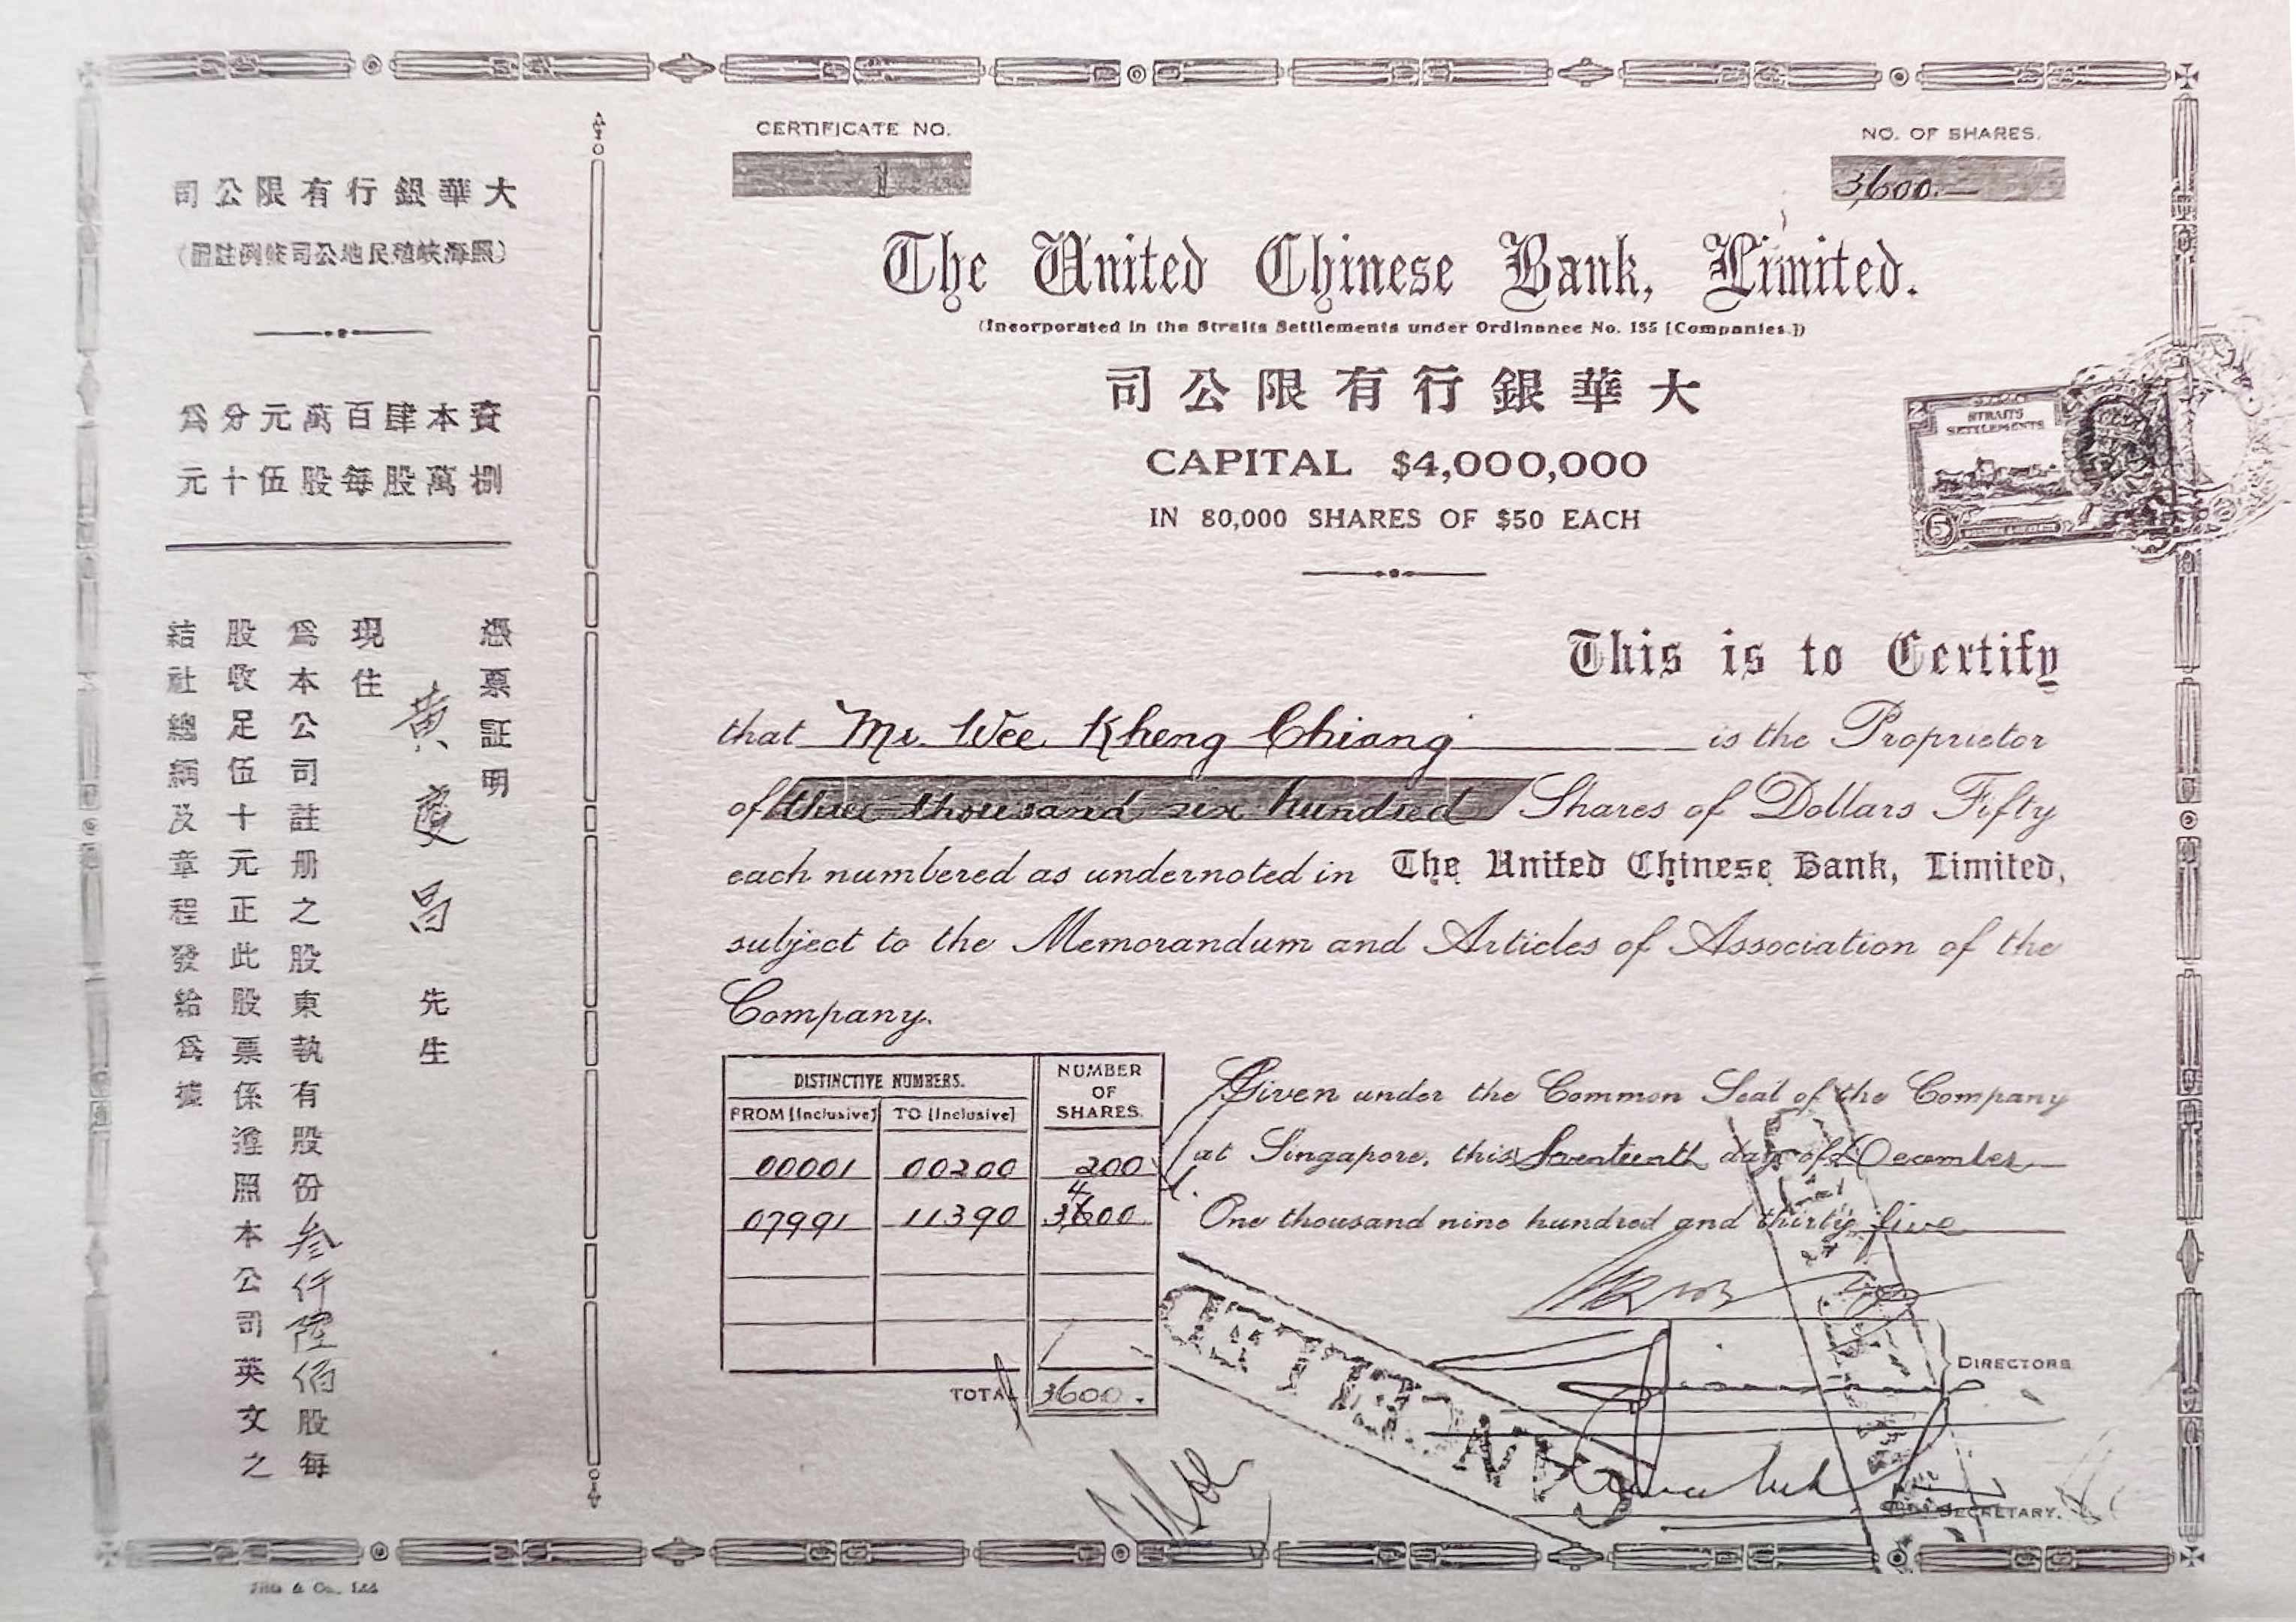 CERTIFICATE NO.
1
NO. OF SHARES.
3600.—
The United Chinese Bank, Limited.
(Incorporated in the Straits Settlements under Ordinance No. 155 [Companies.])
司公限有行銀華大
CAPITAL $4,000,000
IN 80,000 SHARES OF $50 EACH
STRAITS
SETTLEMENTS
5
This is to Certify
that Mr. Wee Kheng Chiang is the Proprietor
of three thousand six hundred Shares of Dollars Fifty
each numbered as undernoted in The United Chinese Bank, Limited,
subject to the Memorandum and Articles of Association of the
Company.
DISTINCTIVE NUMBERS. NUMBER OF SHARES.
FROM [Inclusive] TO [Inclusive]
00001 00200 200
07991 11390 3400
TOTAL 3600.
Given under the Common Seal of the Company
at Singapore, this Seventeenth day of December
One thousand nine hundred and thirty five
CANCELLED
DIRECTORS
SECRETARY.
司公限有行銀華大
(冊註例條司公地民殖峽海照)
為分元萬百肆本資
元十伍股每股萬捌
憑票証明
黃慶昌先生
現住
為本公司註册之股東執有股份叁仟陸佰股每
股收足伍十元正此股票係遵照本公司英文之
結社總綱及章程發給為據
& Co., Ltd